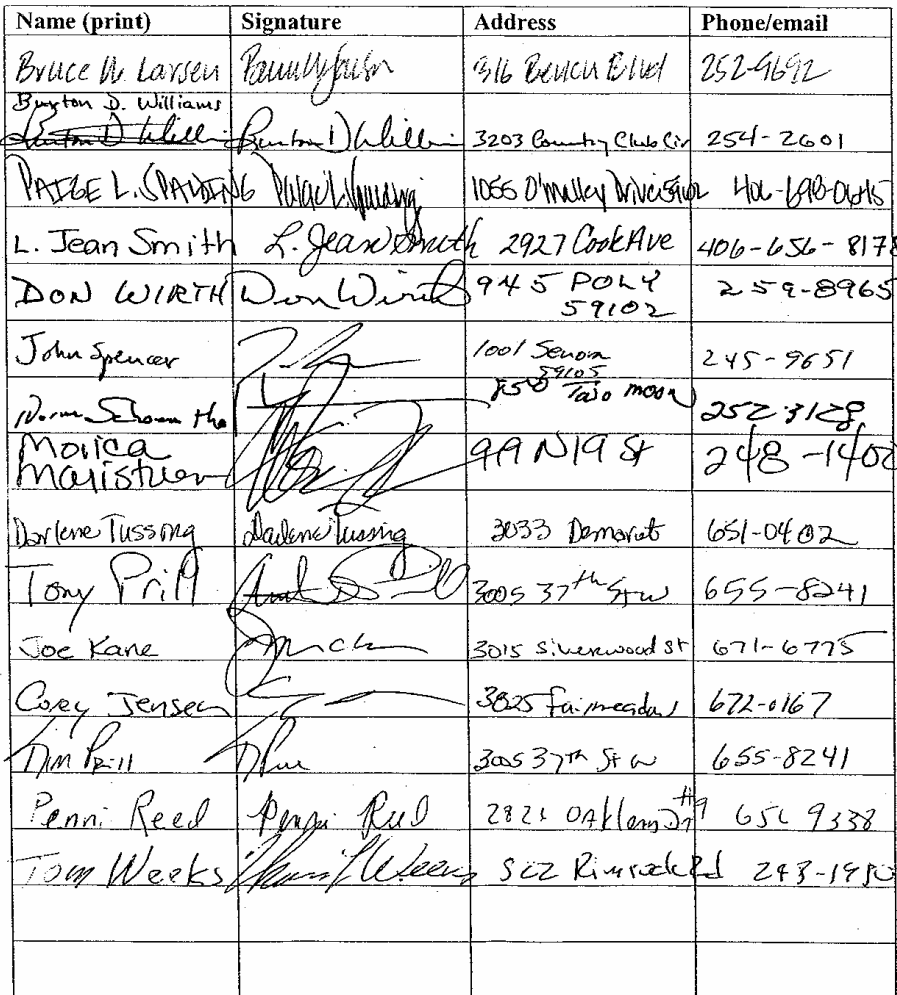 Name (print) Signature Address Phone/email
Bruce W. Larsen 316 Bench Blvd 252-9692
Burton D. Williams
Burton D Willi 3203 Country Club Cir 254-2601
PAIGE L. SPALDING 1055 O'Malley Drive 406-698-0645
L. Jean Smith L. Jean Smith 2927 Cook Ave 406-656-8178
DON WIRTH Don Wirth 945 POLY 259-8965
59102
John Spencer 1001 245-9651
59105
Norm 850 252 3128
Monica 99 N 19 St 248-1402
Maristuen
Darlene Tussing Darlene Tussing 3033 Demaret 651-0402
Tony Prill 3005 37th St W 655-8241
Joe Kane 3015 Silverwood St 671-6775
Corey Jensen 3825 Fairmeadow 672-0167
Tim Prill 3005 37th St W 655-8241
Penni Reed Penni Reed #9
Tom Weeks Rimrock Rd